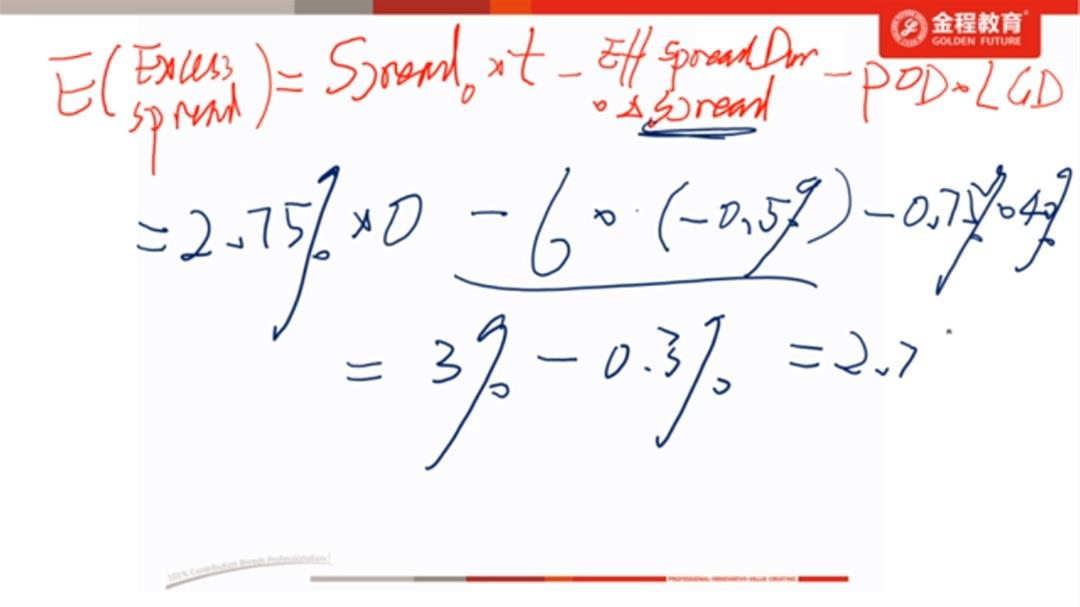 金程教育
GOLDEN FUTURE
E(Excess spread) = Spread₀ × t - Eff spread Dur · Δspread - POD × LGD
= 2.75% × 0 - 6 × (-0.5%) - 0.75% · 40%
= 3% - 0.3% = 2.7
101% Contribution Breeds Professionalism!
PROFESSIONAL·INNOVATIVE·VALUE CREATING